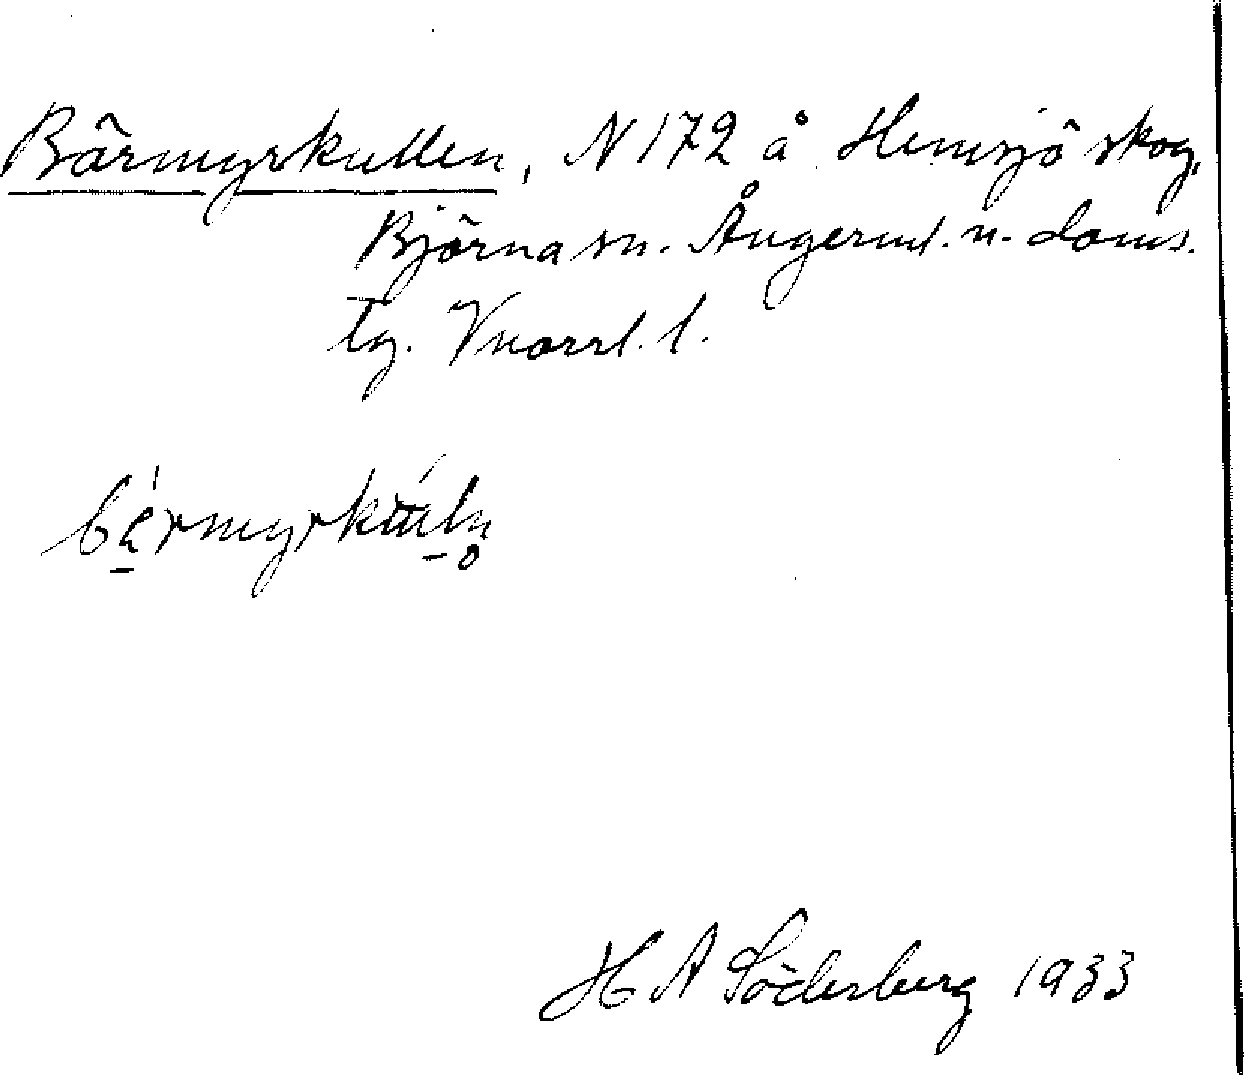 Bärmyrkullen, N 172 å Hemsjö skog,
Björna sn. Ångerml. n. doms.
tg. Vnorrl. l.
H A Söderberg 1933